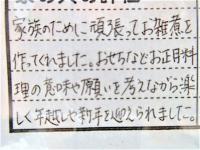 家族のために頑張ってお雑煮を
作ってくれました。おせちなどお正月料
理の意味や願いを考えながら楽
しく年越しや新年を迎えられました。